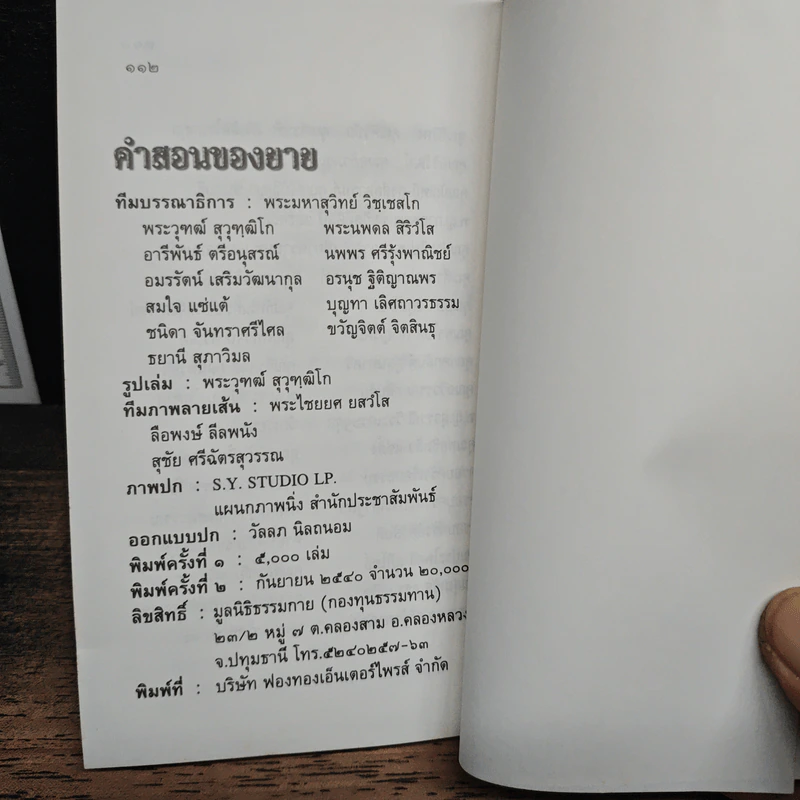 ๑๑๒
คำสอนของยาย
ทีมบรรณาธิการ : พระมหาสุวิทย์ วิชฺเชสโก
พระวุฑฒ์ สุวุฑฺฒิโก พระนพดล สิริวํโส
อารีพันธ์ ตรีอนุสรณ์ นพพร ศรีรุ้งพาณิชย์
อมรรัตน์ เสริมวัฒนากุล อรนุช ฐิติญาณพร
สมใจ แซ่แต้ บุญทา เลิศถาวรธรรม
ชนิดา จันทราศรีไศล ขวัญจิตต์ จิตสินธุ
ธยานี สุภาวิมล
รูปเล่ม : พระวุฑฒ์ สุวุฑฺฒิโก
ทีมภาพลายเส้น : พระไชยยศ ยสวํโส
ลือพงษ์ ลีลพนัง
สุชัย ศรีฉัตรสุวรรณ
ภาพปก : S.Y. STUDIO LP.
แผนกภาพนิ่ง สำนักประชาสัมพันธ์
ออกแบบปก : วัลลภ นิลถนอม
พิมพ์ครั้งที่ ๑ : ๕,๐๐๐ เล่ม
พิมพ์ครั้งที่ ๒ : กันยายน ๒๕๔๐ จำนวน ๒๐,๐๐๐
ลิขสิทธิ์ : มูลนิธิธรรมกาย (กองทุนธรรมทาน)
๒๓/๒ หมู่ ๗ ต.คลองสาม อ.คลองหลวง
จ.ปทุมธานี โทร.๕๒๔๐๒๕๗-๖๓
พิมพ์ที่ : บริษัท ฟองทองเอ็นเตอร์ไพรส์ จำกัด